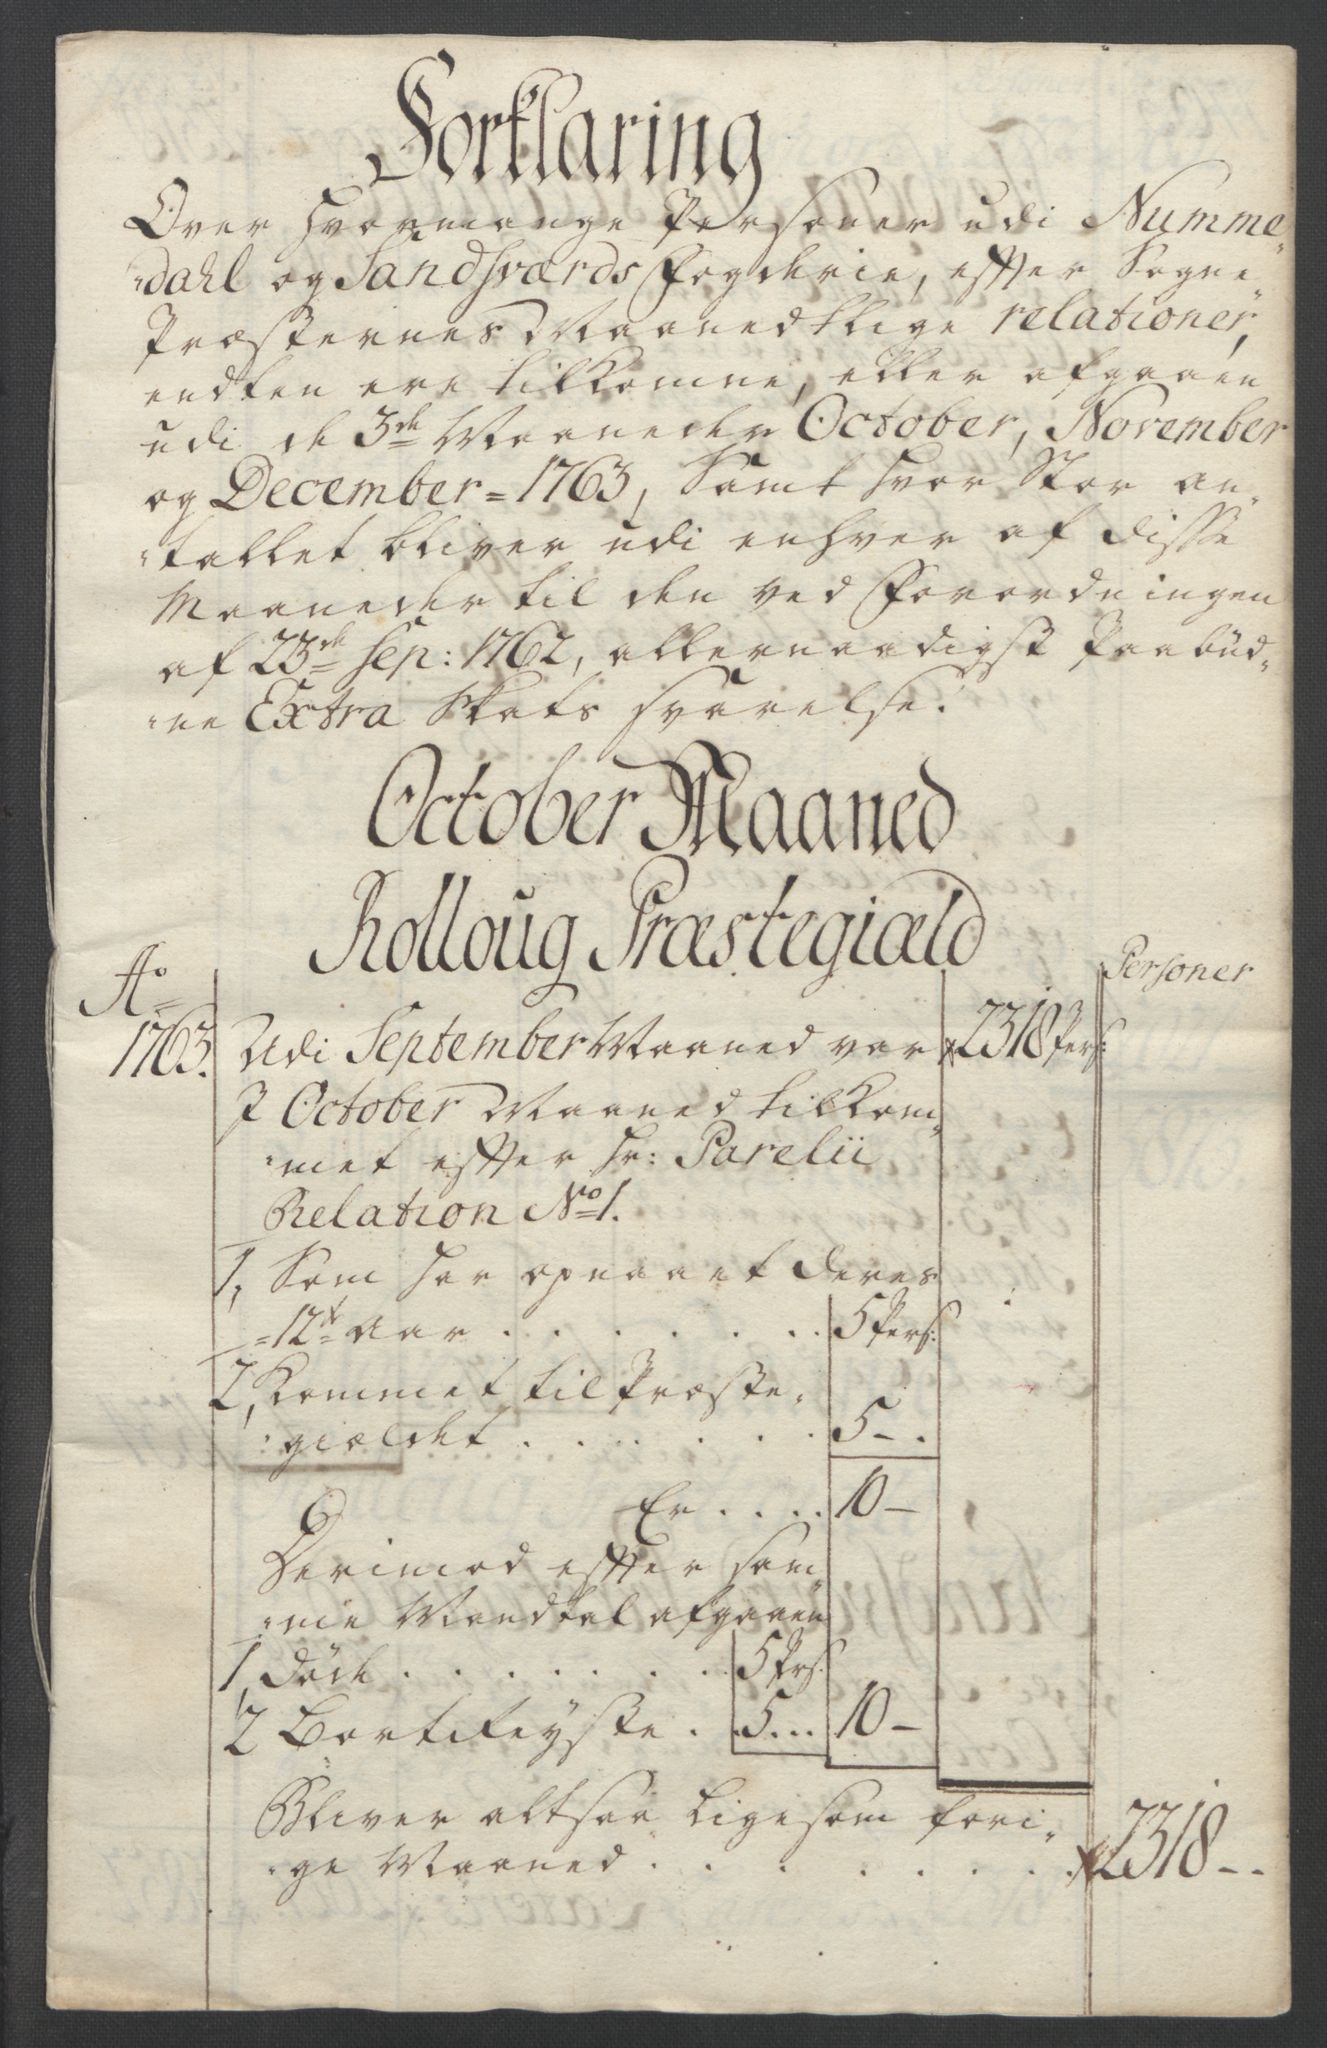 Forklaring
Over hvormange Personer udi Numme-
-dahl og Sandsværds Fogderie, effter Sogne-
Præsternes Maanedtlige relationer,
endten ere tilkomne, eller afgaaen
udi de 3de Maaneder October, November
og December = 1763, Samt hvor Stor an-
-tallet bliver udi enhver af disse
Maaneder til den ved Forordningen
af 23de Sep: 1762, allernaadigst Paabüd-
-ne Extra Skats svarelse.
October Maaned
Rolloug Præstegiæld
Ao
Personer
1763. Udi September Maaned var 2318 Pers:
I October Maaned tilkom-
-met effter Hr: Parelii
Relation No 1.
1, Som har opnaaet deres
=12te Aar . . . . . . . 5 Pers:
2, Kommet til Præste-
-giældet . . . . . . 5 - .
Er . . . . 10 -
Derimod effter sam-
-me Mandtal afgaaen
1 døde . . . . . . . 5 Prs.
2 Bortfløyste . . 5 . . . 10 -
Bliver altsaa ligesom fori-
-ge Maaned . . . . . . . . 2318 - -